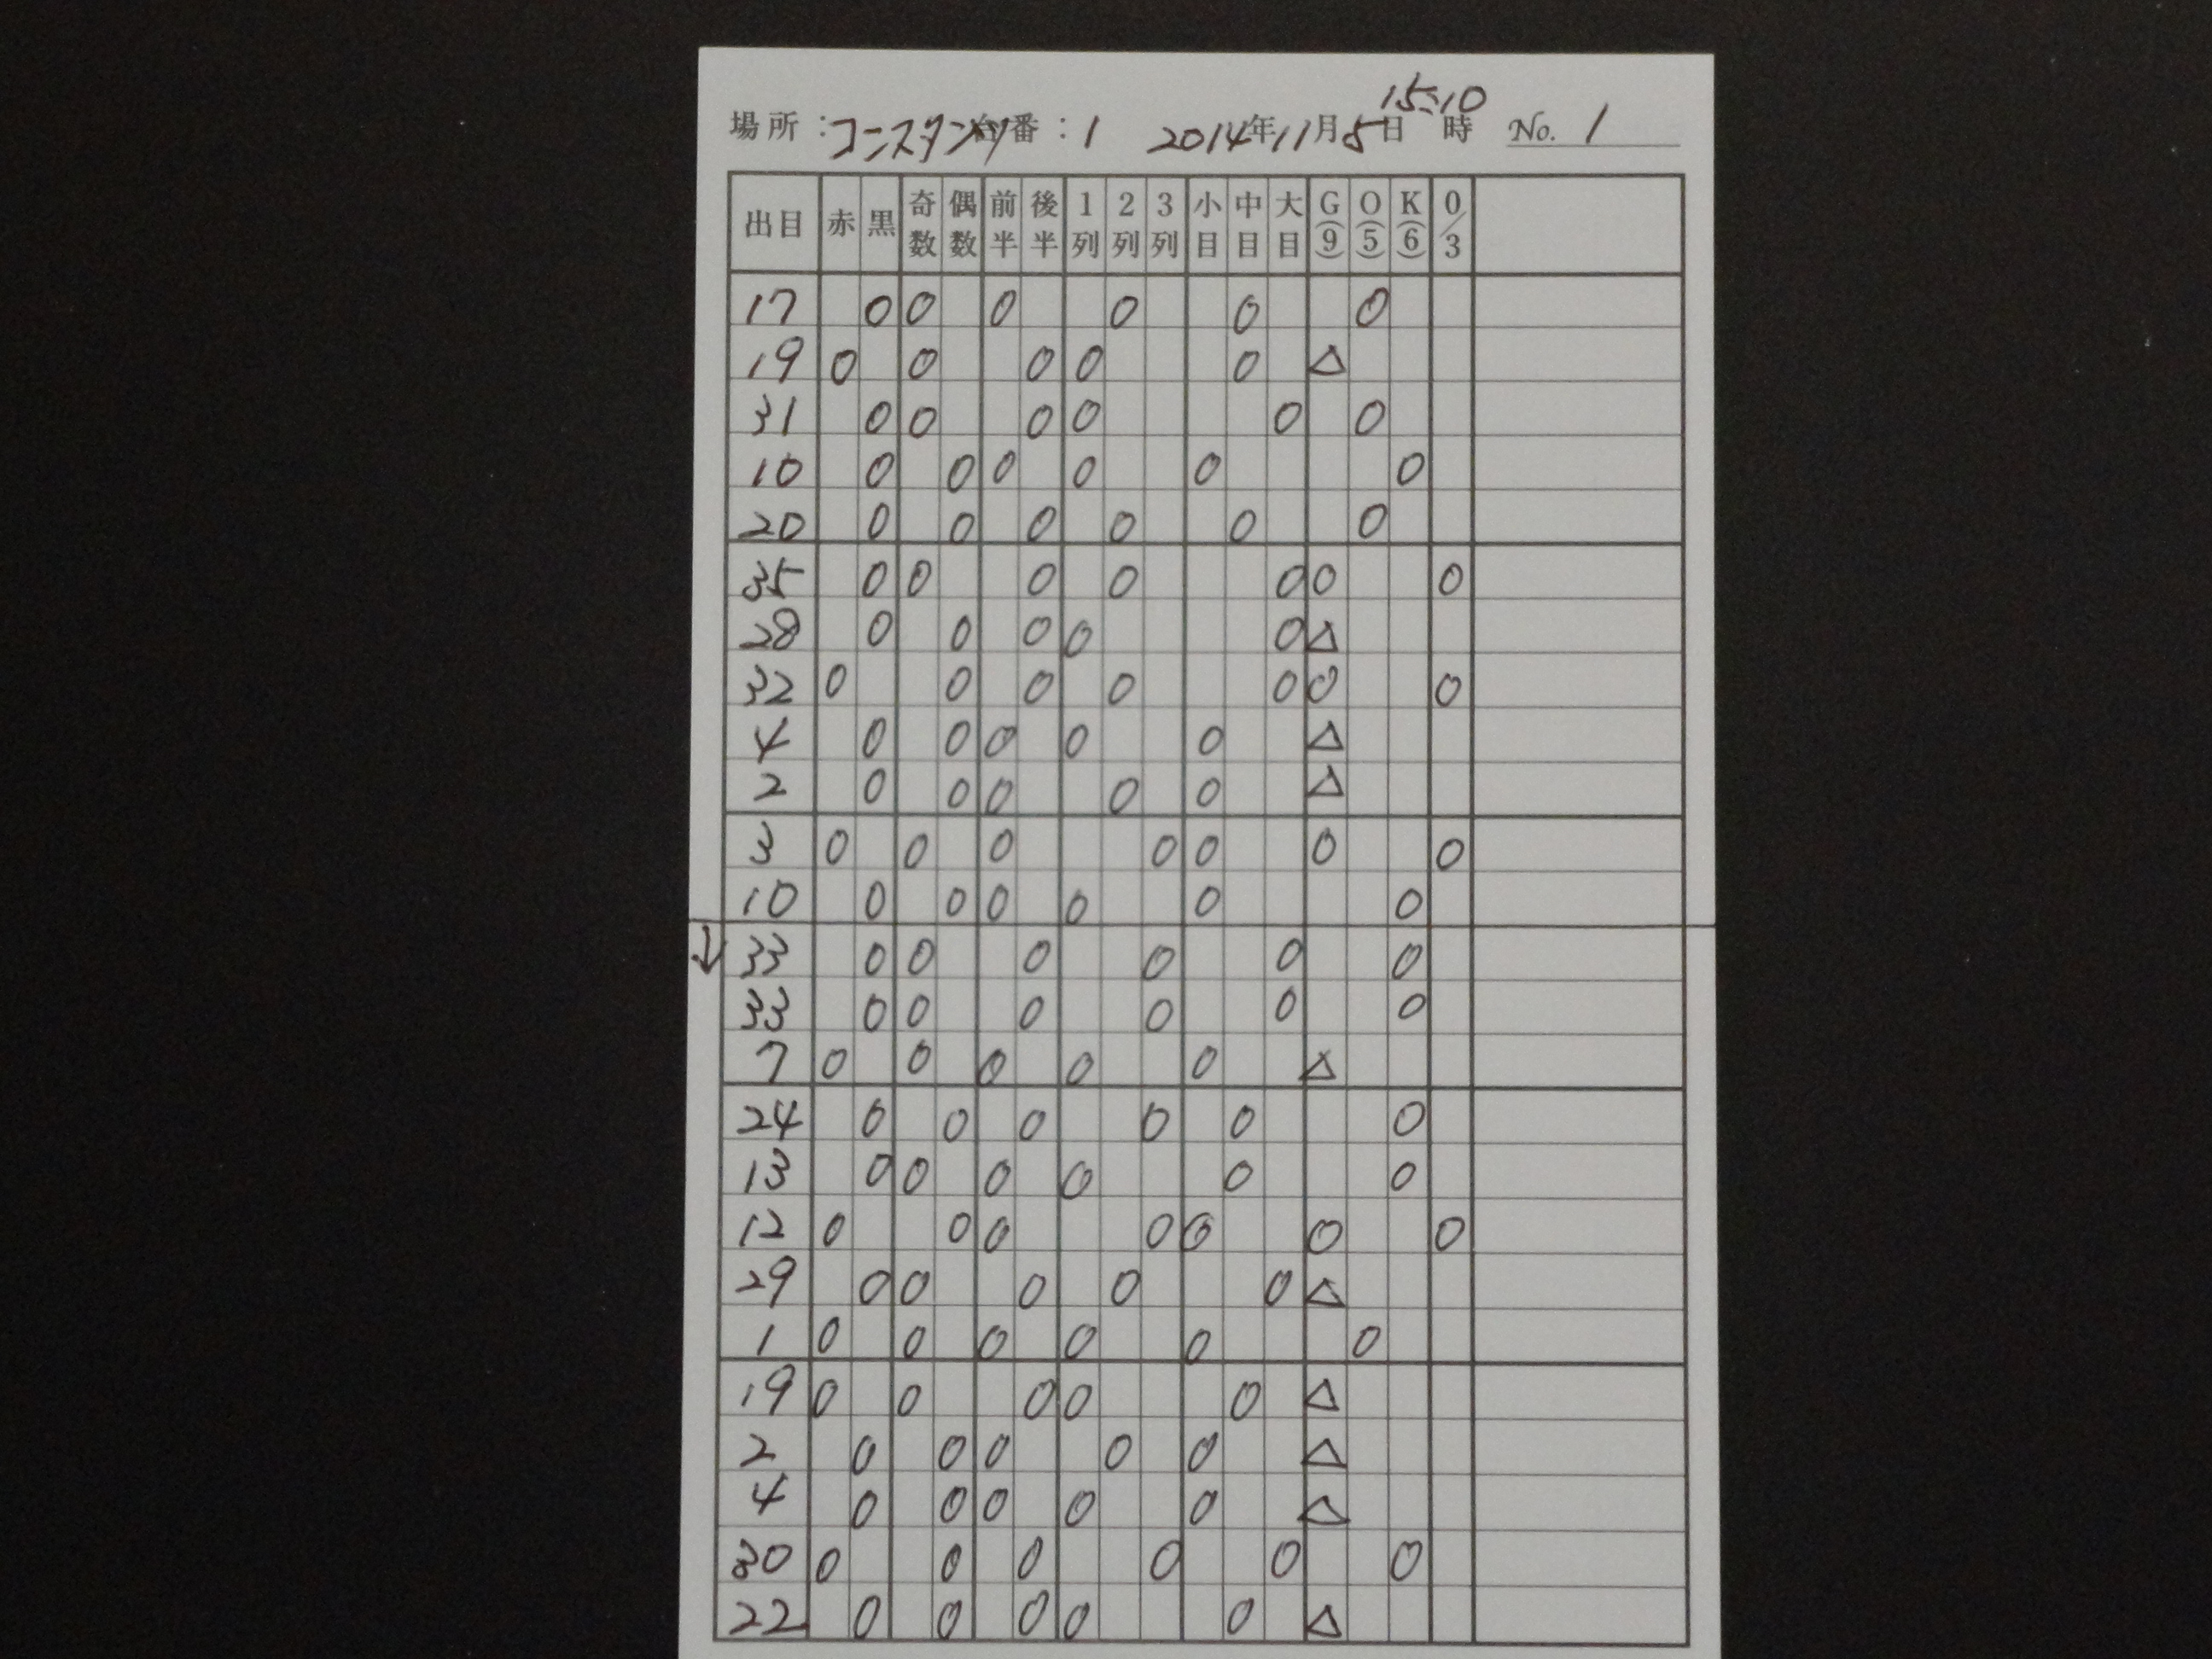 場所：コンスタンツ 台番：1 2014年11月5日 15:10時 No. 1
出目 赤 黒 奇数 偶数 前半 後半 1列 2列 3列 小目 中目 大目 G(9) O(5) K(6) 0/3
17 0 0 0 0 0 0
19 0 0 0 0 0 △
31 0 0 0 0 0 0
10 0 0 0 0 0 0
20 0 0 0 0 0 0
35 0 0 0 0 0 0 0
28 0 0 0 0 0 △
32 0 0 0 0 0 0 0
4 0 0 0 0 0 △
2 0 0 0 0 0 △
3 0 0 0 0 0 0 0
10 0 0 0 0 0 0
↓ 33 0 0 0 0 0 0
33 0 0 0 0 0 0
7 0 0 0 0 0 △
24 0 0 0 0 0 0
13 0 0 0 0 0 0
12 0 0 0 0 0 0 0
29 0 0 0 0 0 △
1 0 0 0 0 0 0
19 0 0 0 0 0 △
2 0 0 0 0 0 △
4 0 0 0 0 0 △
30 0 0 0 0 0 0
22 0 0 0 0 0 △